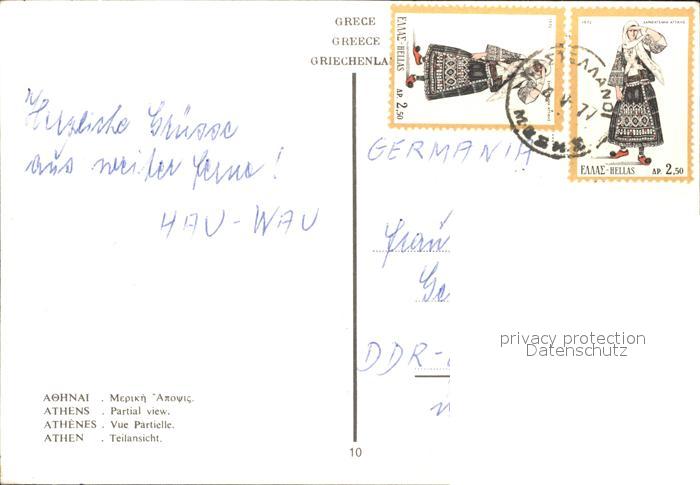 GRECE
GREECE
GRIECHENLA
ΕΛΛΑΣ-HELLAS
ΔΡ. 2,50
1972
ΕΛΛΑΣ-HELLAS ΔΡ. 2,50
Herzliche Grüsse
aus weiter Ferne!
HAU-WAU
GERMANIA
Frau
DDR-
privacy protection
Datenschutz
ΑΘΗΝΑΙ . Μερικὴ Ἄποψις.
ATHENS . Partial view.
ATHÈNES . Vue Partielle.
ATHEN . Teilansicht.
10